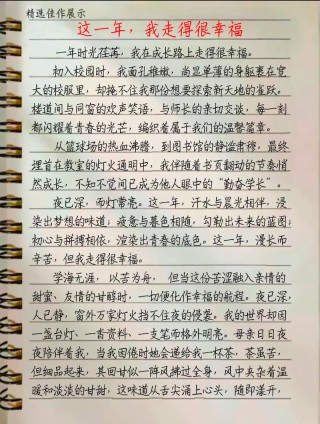 精选佳作展示
这一年，我走得很幸福
一年时光荏苒，我在成长路上走得很幸福。
初入校园时，我面孔稚嫩，尚显单薄的身躯裹在宽
大的校服里，却掩不住我那份想要探索新天地的雀跃。
楼道间与同窗的欢声笑语，与师长的亲切交谈，每一刻
都闪耀着青春的光芒，编织着属于我们的温馨篇章。
从篮球场的热血沸腾，到图书馆的静谧肃穆，最终
埋首在教室的灯火通明中，我伴随着书页翻动的节奏悄
然成长，不知不觉间已成为他人眼中的“勤奋学长”。
夜已深，而灯常亮。这一年，汗水与晨光相伴，浸
染出梦想的味道；疲惫与暮色相随，勾勒出未来的蓝图；
初心与拼搏相依，渲染出青春的底色。这一年，漫长而
辛苦，但我走得很幸福。
学海无涯，以苦为舟，但当这份苦涩融入亲情的
甜蜜、友情的甘醇时，一切便化作幸福的航程。夜已深，
人已静，窗外万家灯火挡不住夜的侵袭。我的世界却因
一盏台灯、一沓资料、一支笔而格外明亮。母亲日日夜
夜陪伴着我，当我困倦时她会递给我一杯茶，茶虽苦，
但细品起来，其回甘又似一阵风拂过全身，风中夹杂着温
暖和淡淡的甘甜，这味道从舌尖涌上心头，随即漾开，